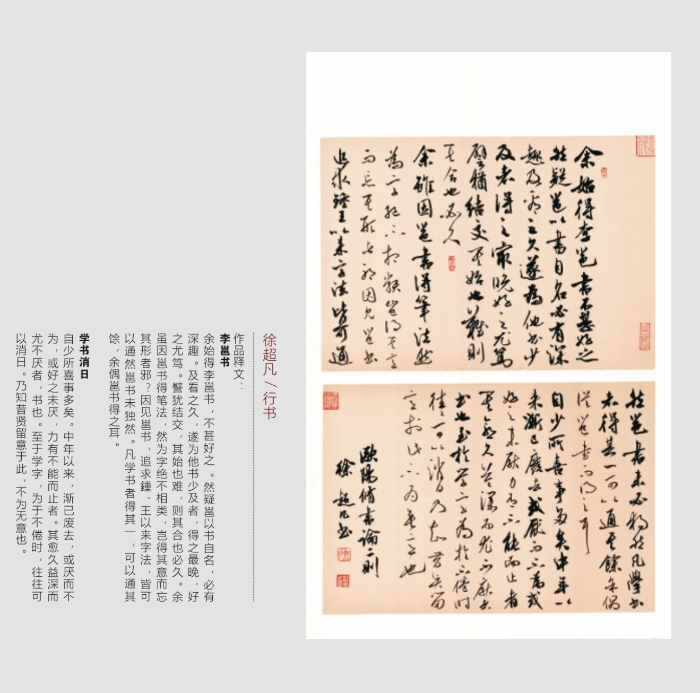 余始得李邕書不甚好之
然疑邕以書自名必有深
趣及看之久遂為他書少
及者得之最晚好之尤篤
譬猶結交其始也難則
其合也必久
余雖因邕書得筆法然
為字絕不相類豈得其意
而忘其形者邪因見邕書
追求鍾王以来字法皆可通
然邕書未必獨然凡學書
者得其一可以通其餘余偶
從邕書而得之耳
自少所喜事多矣中年以
来漸已廢去或厭而不為或
好之未厭力有不能而止者
其愈久益深而尤不厭者
書也至於學字為於不倦時
往往可以消日乃知昔賢留
意於此不為無意也
歐陽脩書論二則
徐超凡書
徐超凡／行书
作品释文：
李邕书
余始得李邕书，不甚好之。然疑邕以书自名，必有
深趣。及看之久，遂为他书少及者，得之最晚，好
之尤笃。譬犹结交，其始也难，则其合也必久。余
虽因邕书得笔法，然为字绝不相类，岂得其意而忘
其形者邪？因见邕书，追求鍾、王以来字法，皆可
以通然邕书未独然。凡学书者得其一，可以通其
馀，余偶邕书得之耳。
学书消日
自少所喜事多矣。中年以来，渐已废去，或厌而不
为，或好之未厌，力有不能而止者。其愈久益深而
尤不厌者，书也。至于学字，为于不倦时，往往可
以消日。乃知昔贤留意于此，不为无意也。